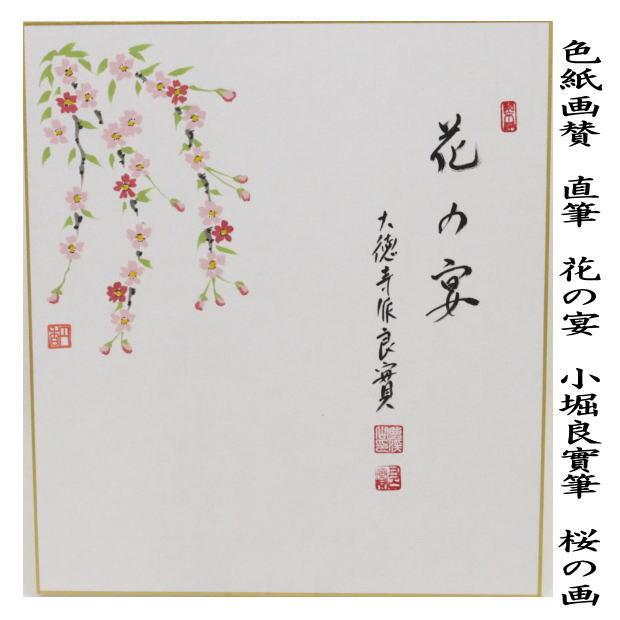 色紙画賛　直筆　花の宴　小堀良實筆　桜の画
花の宴
大徳寺派良實